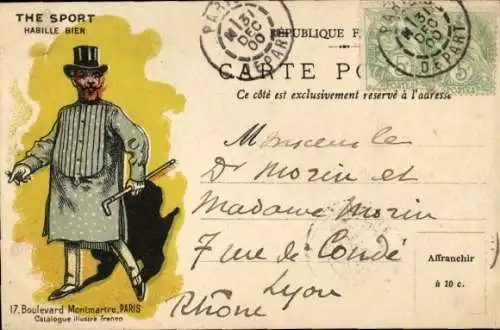 THE SPORT
HABILLE BIEN
PARIS
13
DEC
00
DEPART
RÉPUBLIQUE F
CARTE PO
Ce côté est exclusivement réservé à l'adresse
PARIS
13
DEC
00
DEPART
5
5
Monsieur le
Dr Morin et
Madame Morin
7 rue de Condé
Lyon
Rhône
Affranchir
à 10 c.
17. Boulevard Montmartre. PARIS
Catalogue illustré Franco